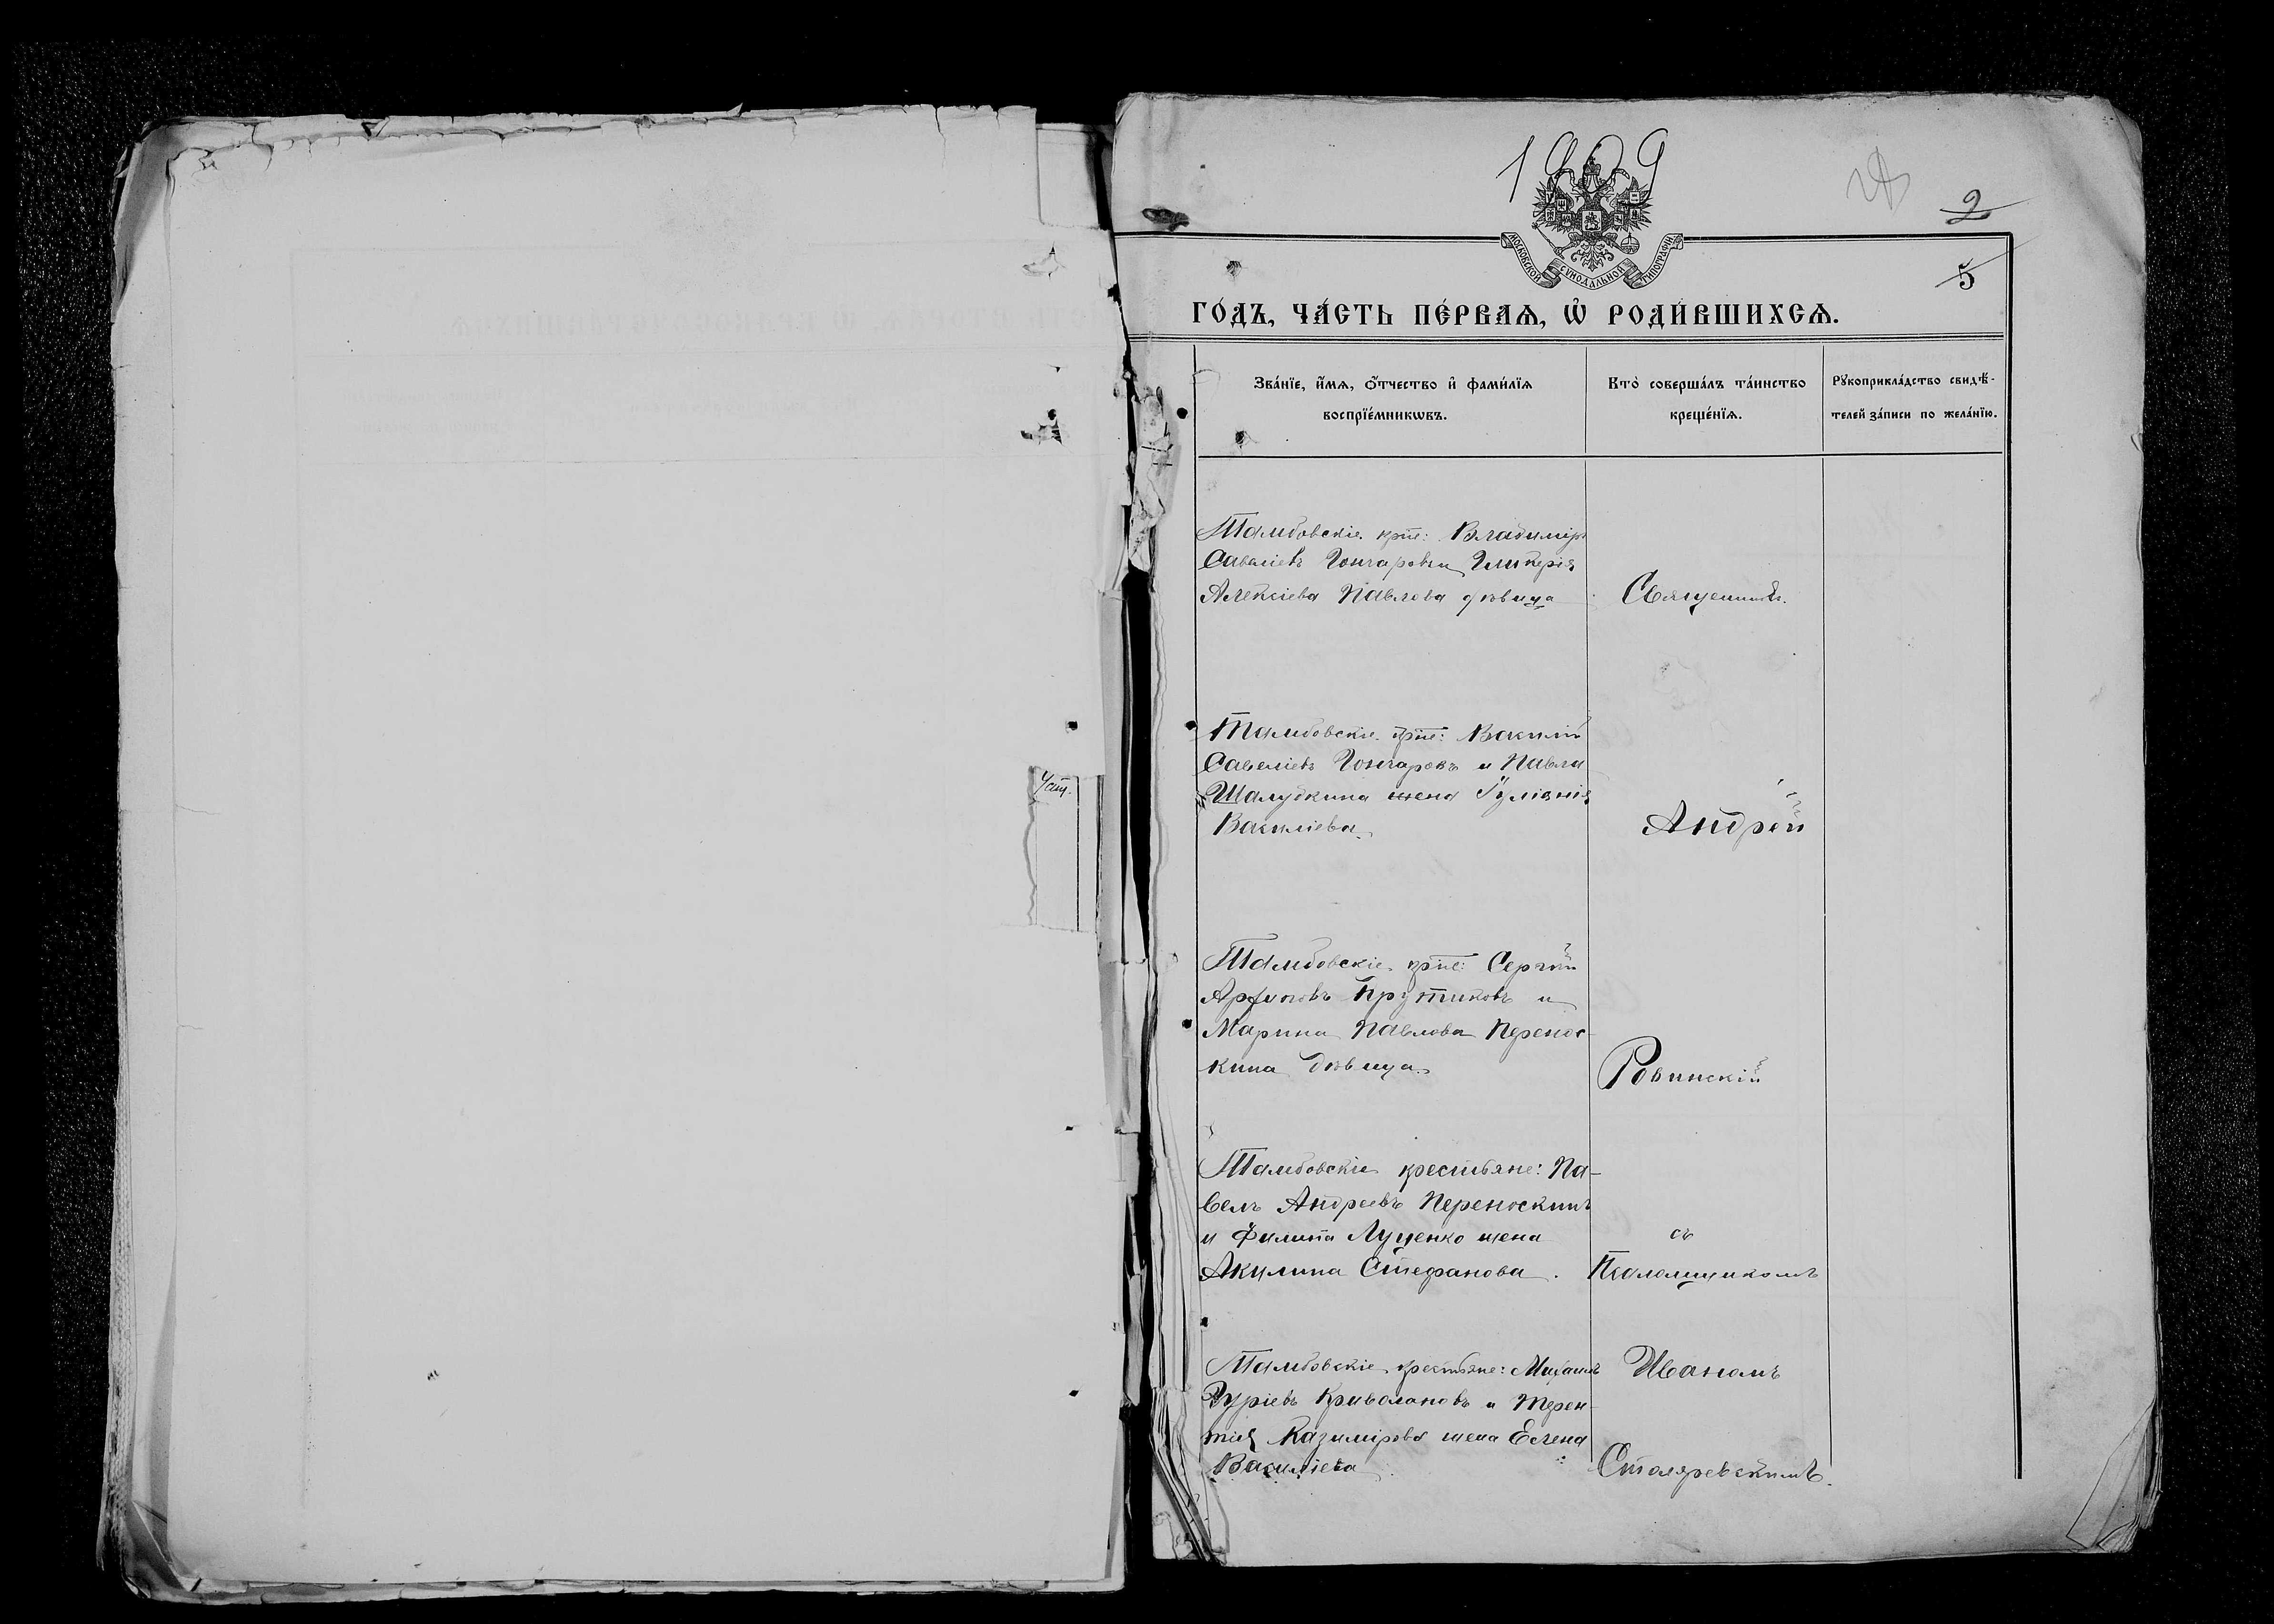 1909
2
5
МОСКОВСКОЙ СѴНОДАЛЬНОЙ ТИПОГРАФІИ
ГО́ДЪ, ЧА́СТЬ ПЕ́РВАѦ, Ѡ҆ РОДИ́ВШИХСѦ.
Зва́нїе, и҆́мѧ, ѻ҆́тчество и҆ фами́лїѧ
воспрїе́мникѡвъ.
Кто̀ соверша́лъ та́инство
креще́нїѧ.
Рꙋкоприкла́дство свидѣ́-
телей за́писи по жела́нїю.
Тамбовскіе крт̃е: Владиміръ
Савеліевъ Гончаровъ и Гликерія
Алексіева Павлова дѣвица
Священникъ
Тамбовскіе крт̃е: Василій
Савеліевъ Гончаровъ и Павла
Шалудкина жена Іуліанія
Василіева
Андрей
Част.
Тамбовскіе крт̃е: Сергій
Крутиковъ и
Марина Павлова Перенос-
кина дѣвица.
Ровинскій
Тамбовскіе крестьяне: Па-
велъ Андреевъ Переноскинъ
и Филипа Луценко жена
Акилина Стефанова.
съ
Псаломщикомъ
Тамбовскіе крестьяне: Михаилъ
Гуріевъ Криволаповъ и Терен-
тія Казимірова жена Елена
Василіева
Иваномъ
Столяревскимъ.